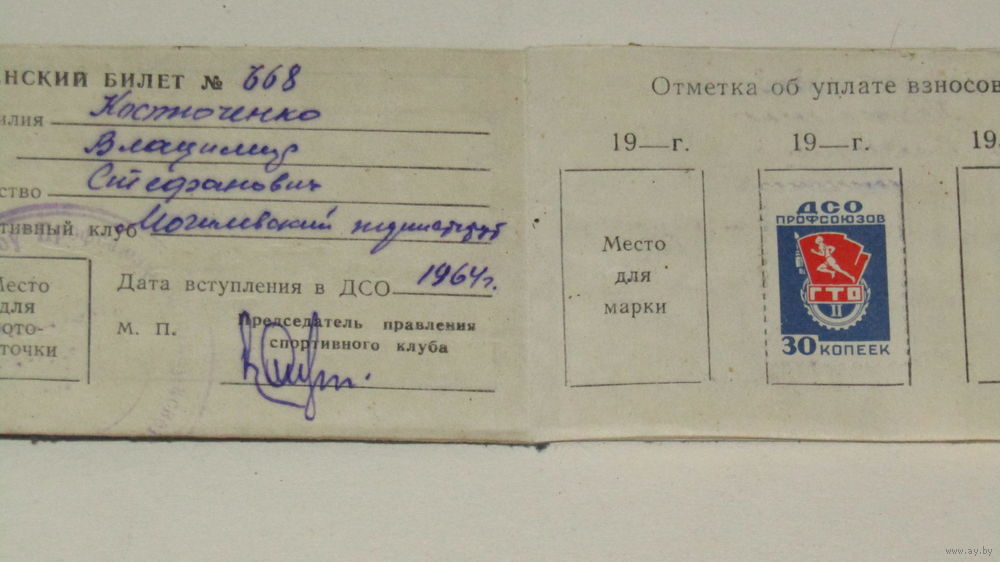 НСКИЙ БИЛЕТ № 668
илия Костюченко
Владимир
ство Стефанович
тивный клуб Могилевский пединститут
Место
для
фото-
точки
Дата вступления в ДСО 1964г.
М. П.
Председатель правления
спортивного клуба
Отметка об уплате взносов
19—г.
19—г.
19
Место
для
марки
ДСО
ПРОФСОЮЗОВ
ГТО
II
30 КОПЕЕК
www.ay.by